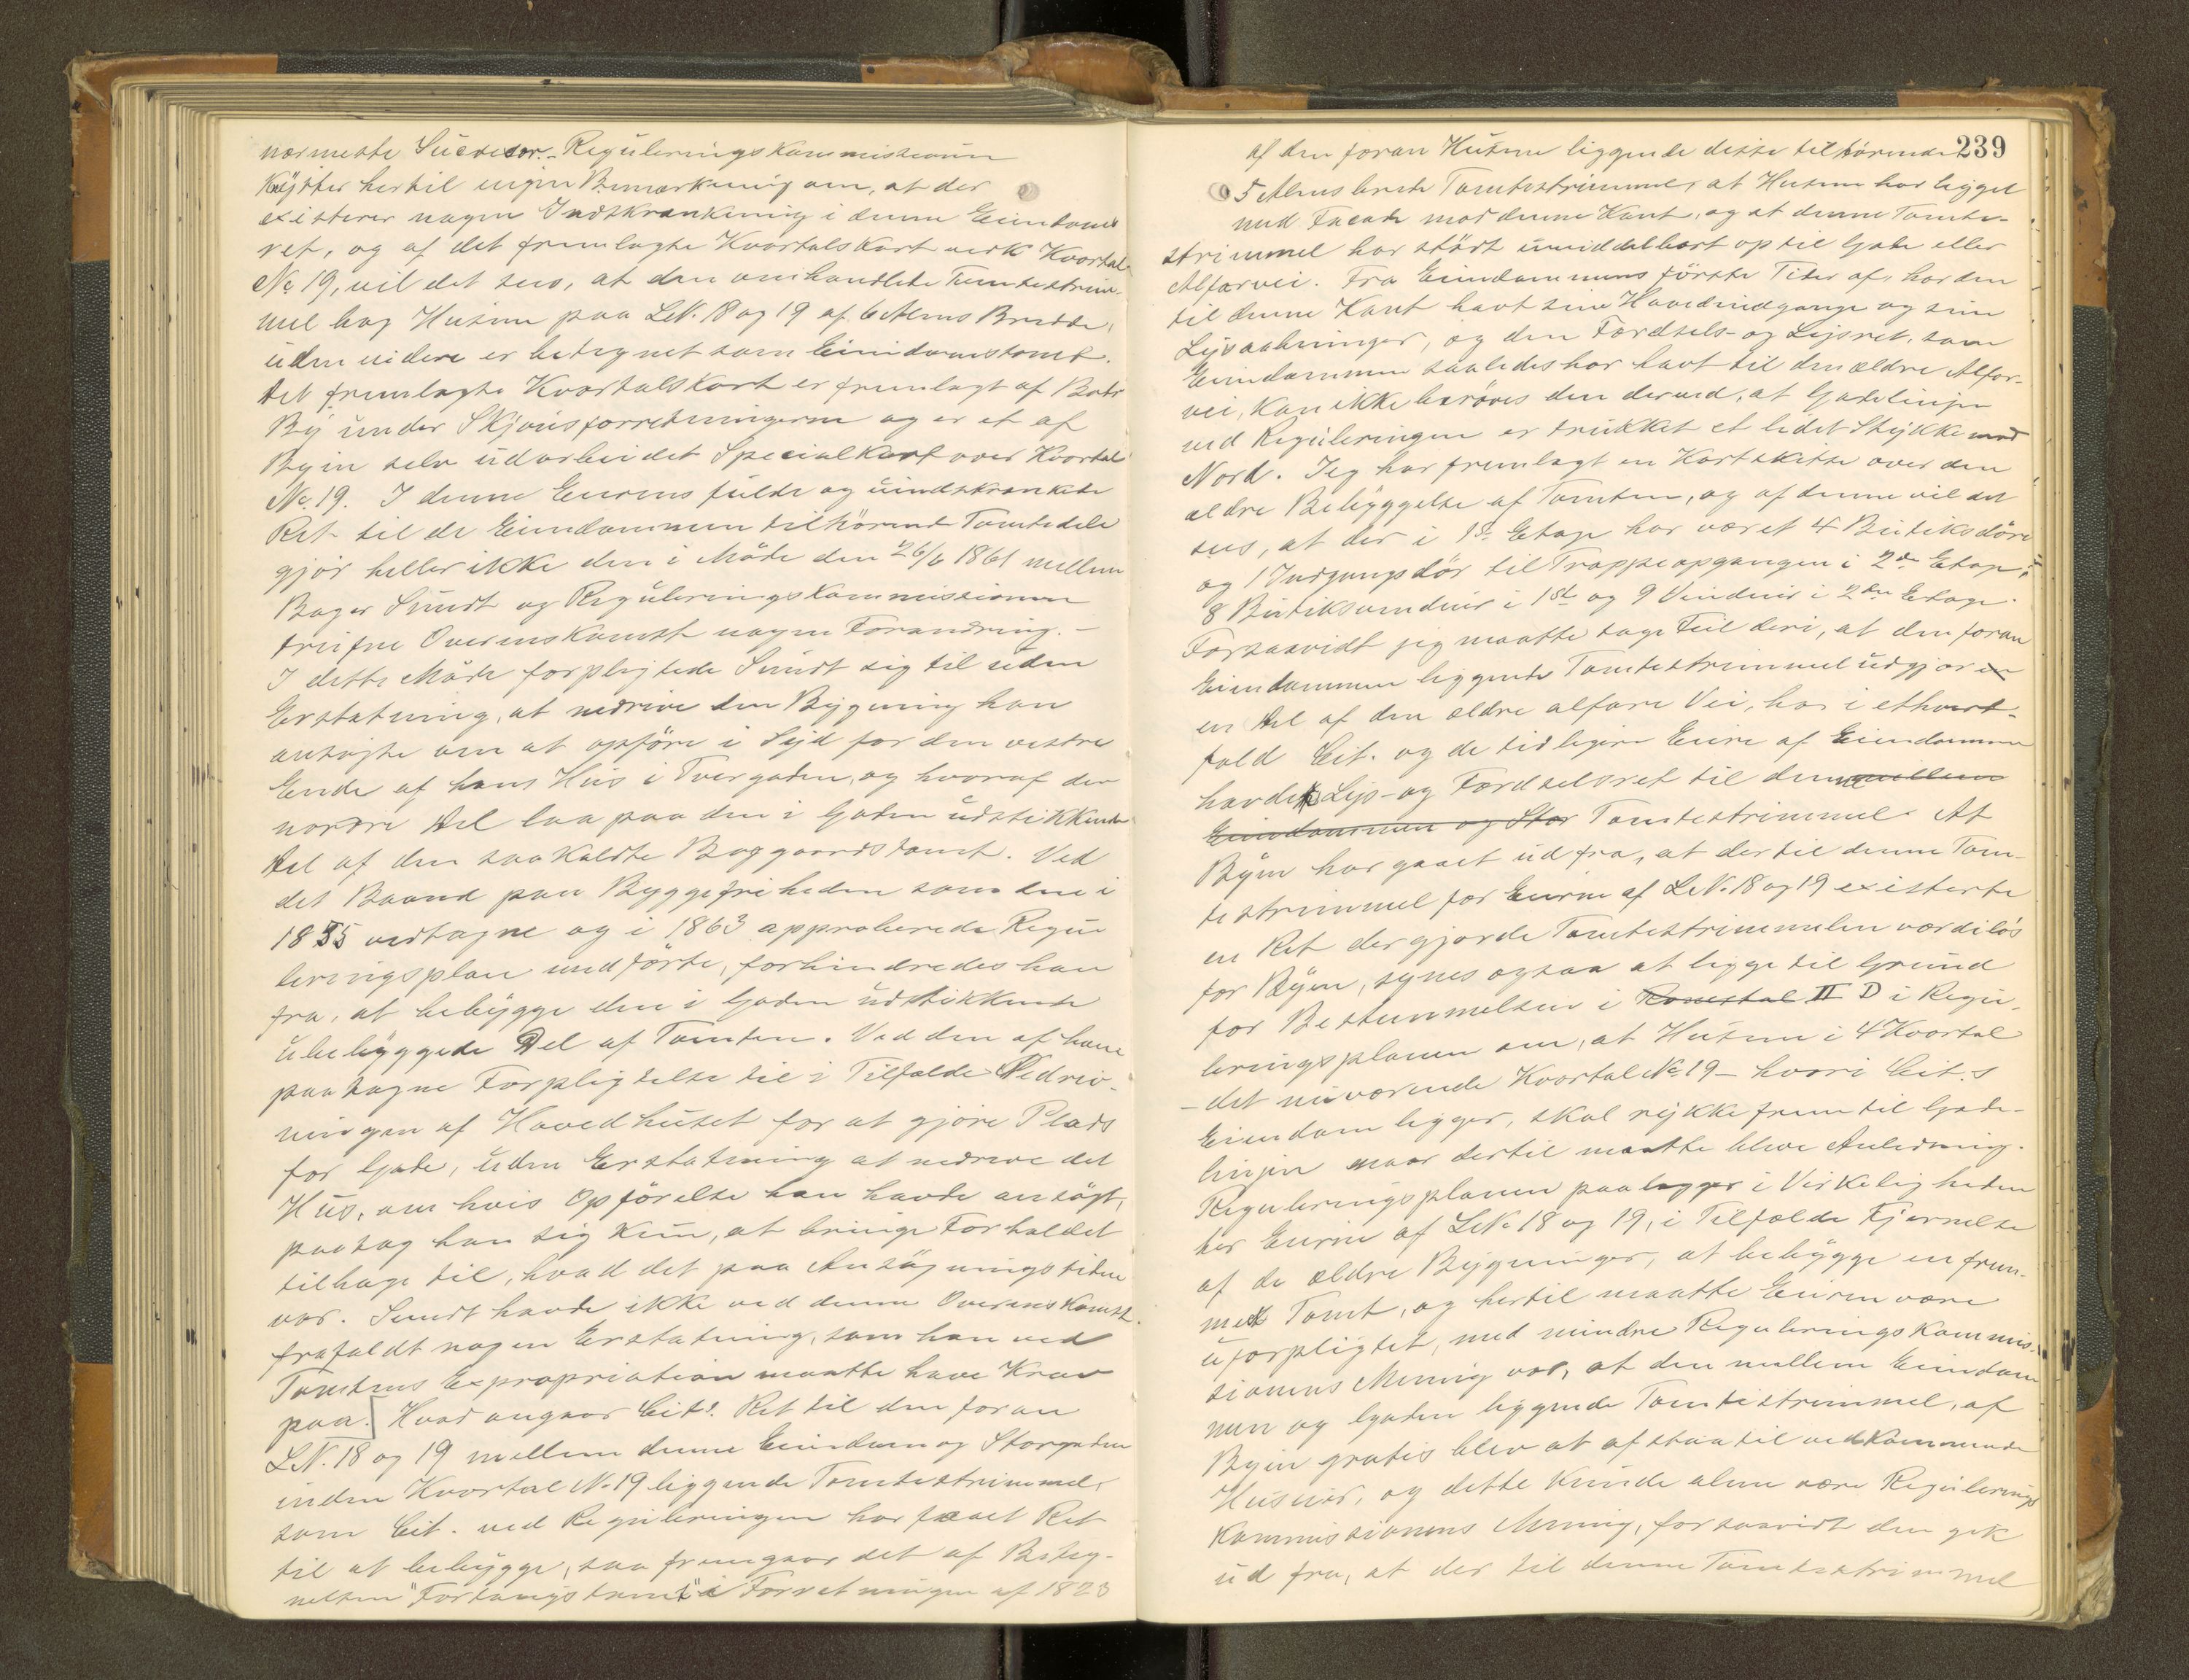 nærmeste Sucessor. Reguleringskommissionen
knytter hertil ingen Bemærkning om, at der
existerer nogen Indskrænkning i denne Eiendoms
ret, og af det fremlagte Kvartalskart verk Kvartal
No 19, vil det sees, at den omhandlede Tomtestrim-
mel bag Husene paa LN. 18 og 19 af 6 Alens Bredde,
uden videre er betegnet som Eiendomstomt.
Det fremlagte Kvartalskart er fremlagt af Bodø
By under Skjønsforretningerne og er et af
Byen selv udarbeidet Specialkart over Kvartal
No. 19. I denne Eierens fulde og uindskrænkede
Ret til de Eiendommen tilhørende Tomtedele
gjør heller ikke den i Møde den 26/6 1861 mellem
Bager Sundt og Reguleringskommissionen
trufne Overenskomst nogen Forandring. -
I dette Møde forpligtede Sundt sig til uden
Erstatning, at nedrive den Bygning han
ansøgte om at opføre i Syd for den vestre
Ende af hans Hus i Tvergaden, og hvoraf den
nordre Del laa paa den i Gaden udstikkende
Del af den saakaldte Baggaardstomt. Ved
det Baand paa Byggefriheden som den i
1855 vedtagne og i 1863 approberede Regu
leringsplan medførte, forhindredes han
fra, at bebygge den i Gaden udstikkende
ubebyggede Del af Tomten. Ved den af ham
paatagne Forpligtelse til i Tilfælde Nedriv-
ningen af Hovedhuset for at gjøre Plads
for Gade, uden Erstatning at nedrive det
Hus, om hvis Opførelse han havde ansøgt,
paatog han sig kun, at bringe Forholdet
tilbage til, hvad det paa Ansøgningstiden
var. Sundt havde ikke ved denne Overenskomst
frafaldt nogen Erstatning, som han ved
Tomtens Expropriation maatte have Krav
paa.] Hvad angaar Cits. Ret til den foran
LN. 18 og 19 mellem denne Eiendom og Storgaden
inden Kvartal N. 19 liggende Tomtestrimmel,
som Cit. ved Reguleringen har faaet Ret
til at bebygge, saa fremgaar det af Beteg-
nelsen "Fortaugstomt" i Forretningen af 1823
239
af den foran Husene liggende disse tilhørende
5 Alens brede Tomtestrimmel, at Husene har ligget
med Facade mod denne Kant, og at denne Tomte-
strimmel har stødt umiddelbart op til Gade eller
Alfarvei. Fra Eiendommens første Tider af, har den
til denne Kant havt sine Hovedindgange og sine
Lysaabninger, og den Færdsels- og Lysret, som
Eiendommen saaledes har havt til den ældre Alfar-
vei, kan ikke berøves den derved, at Gadelinjen
ved Reguleringen er trukket et lidet Stykke mod
Nord. Jeg har fremlagt en Kartskitse over den
ældre Bebyggelse af Tomten, og af denne vil det
sees, at der i 1st. Etage har været 4 Butiksdøre
og 1 Indgangsdør til Trappeopgangen i 2den Etage,
8 Butiksvinduer i 1ste og 9 Vinduer i 2den Etage.
Forsaavidt jeg maatte tage Feil deri, at den foran
Eiendommen liggende Tomtestrimmel udgjør en
en Del af den ældre alfare Vei, har i ethvert-
fald Cit. og de tidligere Eiere af Eiendommen
havdet Lys- og Færdselsret til denne mellem
Eiendommen og Stor Tomtestrimmel. At
Byen har gaaet ud fra, at der til denne Tom-
testrimmel for Eieren af LN. 18 og 19 existerte
en Ret der gjorde Tomtestrimmelen værdiløs
for Byen, synes ogsaa at ligge til Grund
for Bestemmelsen i II D i Regu-
leringsplanen om, at Husene i 4 Kvartal
- det nuværende Kvartal No 19 - hvori Cit.s
Eiendom ligger, skal rykke frem til Gade-
linjen naar dertil maatte blive Anledning.
Reguleringsplanen paalægger i Virkeligheden
her Eieren af LNo 18 og 19, i Tilfælde Fjernelse
af de ældre Bygninger, at bebygge en frem-
med Tomt, og hertil maatte Eieren være
uforpligtet, med mindre Reguleringskommis-
sionens Mening var, at den mellem Eiendom
men og Gaden liggende Tomtestrimmel, af
Byen gratis blev at afstaa til vedkommende
Huseier, og dette kunde alene være Regulerings
kommissionens Mening, forsaavidt den gik
ud fra, at der til denne Tomtestrimmel